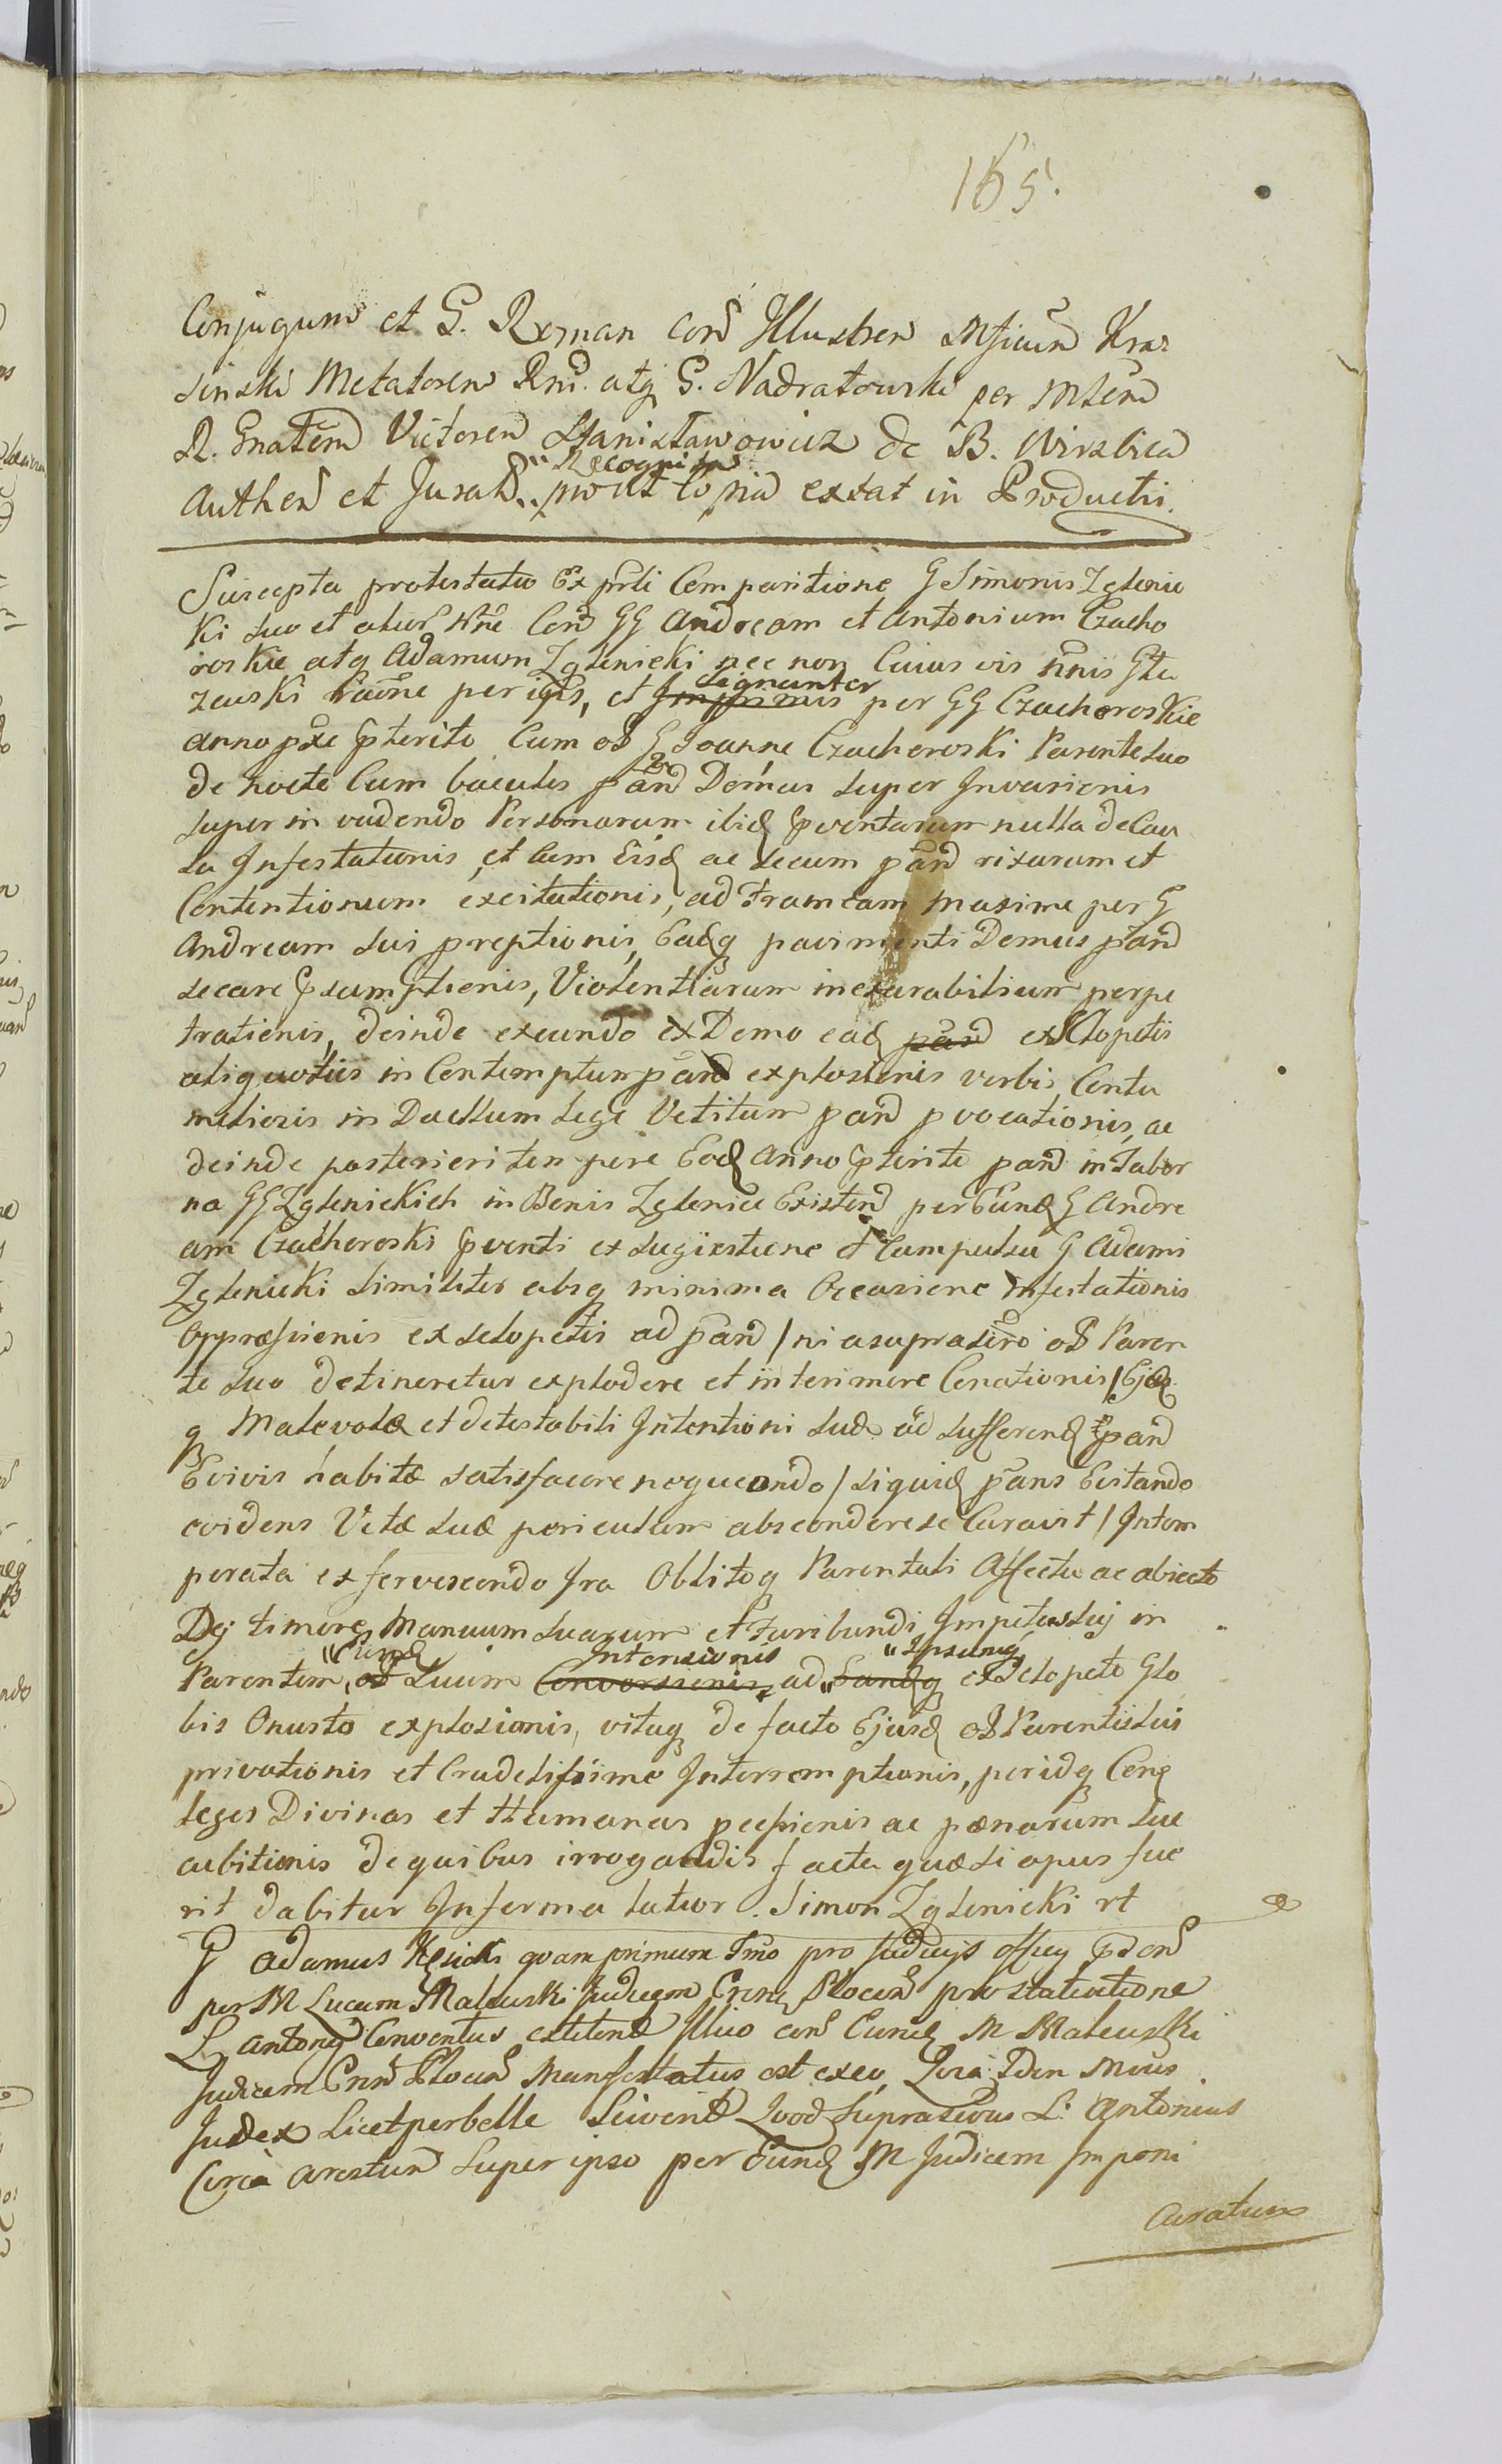 165.
Conjugum et G. Rxman Con Illustren Mficum Kra
sinski Metatoren Rni. atq G. Nadratowski per Mlem
R. Gnatem Victoren Stanisławowicz de B. Wirzbica
Authen et Jurat Recognita prout Copia extat in Productis.
Suscepta protestatio Ex prti Comparitione G Simonis Zglenic
ki suo et alior Nne Con GG Andream et Antonium Czacho
roskie atq Adamum Zglenicki nec non Cuius vis nnis Gtu
zewski raone per ipss, et Imprimis signanter per GG Czachoroskie
anno pxe pterito Cum ol G Joanne Czachoroski Parente suo
de nocte Cum baculis pand Domus super Invasionis
super in vadendo Personarum ibid pventarum nulla de Cau
sa Infestationis, et Cum Eisd ac secum pand rixarum et
Contentionum excitationis, ad Frameam maxime per G
Andream sui preptionis, Eadq pavimenti Domus pand
secare psumptionis, Violentiarum inexurabilium perpe
trationis, deinde exeundo ex Domo ead pand ex Sclopetis
aliquotiis in Contemptum pand explosionis verbis Contu
meliosis in Duellum Lege Vetitum pand pvocationis, ac
deinde posteriori tempore Eod Anno pterito pand in Taber
na GG Zglenickich in Bonis Zglenice Existend per Eund G Andre
am Czachoroski pventi ex sugiestione et Compulsu G Adami
Zglenicki similiter absq minima Occasione infestationis
Oppræsionis ex sclopetis ad pand / ni a suprascro ol Paren
te suo detineretur explodere et interimere Conationis / Ejd
q Malevolæ et detestabili Intentioni suæ ad sufferend pand
E vivis habitæ satisfacere nequeundo / siquid pans Evitando
evidens Vitæ suæ periculum abscondere se Curavit / Intem
perata exfervescendo Ira Oblitoq Parentali Affectu ac abiecto
Dej timore Manuum suarum et Furibundi Impetus sui in
Parentem, "Eund ol Suum Conversionis Intensionis ad "Eandq "Ipsumq ex Sclopeto Glo
bis Onusto explosionis, vitaq de facto Ejusd ol Parentis sui
privationis et Crudelissimo Interremptionis, per idq Cong
leges Divinas et Humanas pcessionis ac pœnarum suc
cubitionis de quibus irrogandis facta quæ si opus fue
rit dabitur Informa latior. Simon Zglenicki rt
G Adamus Kęsicki quam primum Imo pro Judicys offcy pdend
per M Lucam Malewski Judicem Crens Plocen pro statutione
L Antony Conventus extitend Illico con Eund M Malewski
Judicem Crens Plocen Manfestatus est exeo Quia Iden Mcus
Judex Licet perbelle Sciverit Quod supra scrus L. Antonius
Circa arestum super ipso per Eund M Judicem Imponi
Curatum